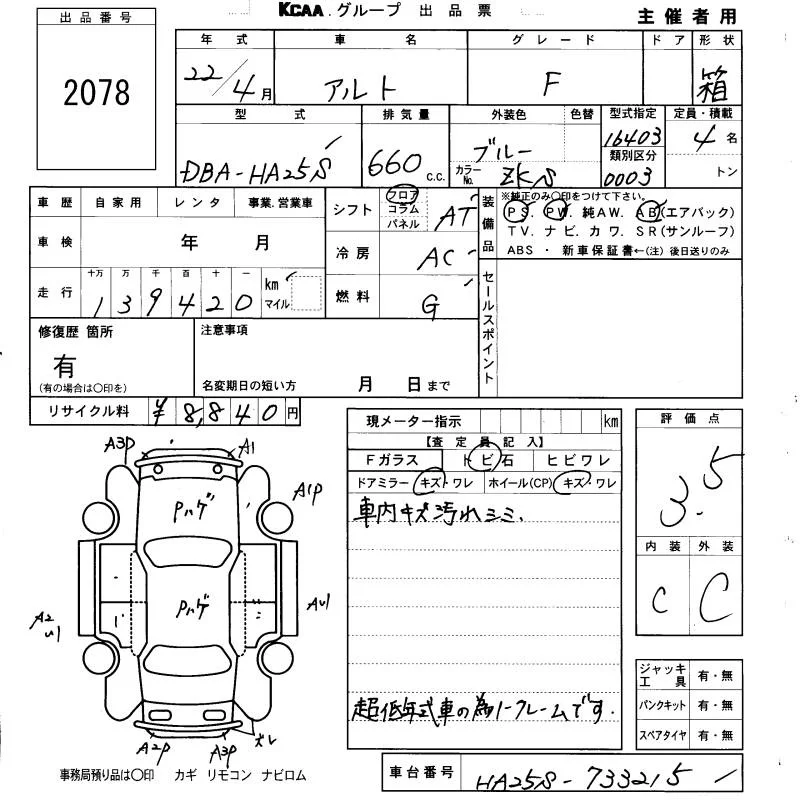 KCAA.グループ 出品票
主催者用
出品番号
2078
年式 車名 グレード ドア 形状
22/4月 アルト F 箱
型式 排気量 外装色 色替 型式指定 定員・積載
DBA-HA25S 660 C.C. ブルー 16403 4名
カラーNo. ZKS 類別区分 0003 トン
車歴 自家用 レンタ 事業.営業車
車検 年 月
走行 十万 万 千 百 十 一 km マイル
1 3 9 4 2 0
シフト フロア コラム パネル AT
冷房 AC
燃料 G
装備品
※純正のみ〇印をつけて下さい。
PS. PW. 純AW. AB(エアバック)
TV. ナビ. カワ. SR(サンルーフ)
ABS ・ 新車保証書←(注) 後日送りのみ
セールスポイント
修復歴 箇所
有
(有の場合は〇印を)
注意事項
名変期日の短い方 月 日まで
リサイクル料 ¥ 8,840円
現メーター指示 km
【査定員記入】
Fガラス トビ石 ヒビワレ
ドアミラー キズ・ワレ ホイール(CP) キズ・ワレ
車内キズ汚れシミ.
超低年式車の為ノークレームです.
評価点
3.5
内装 外装
C C
A3P A1
A1P
Pハゲ
Pハゲ
A2 U1
AU1
A2P A3P ズレ
事務局預り品は〇印 カギ リモコン ナビロム
ジャッキ工具 有・無
パンクキット 有・無
スペアタイヤ 有・無
車台番号 HA25S-733215